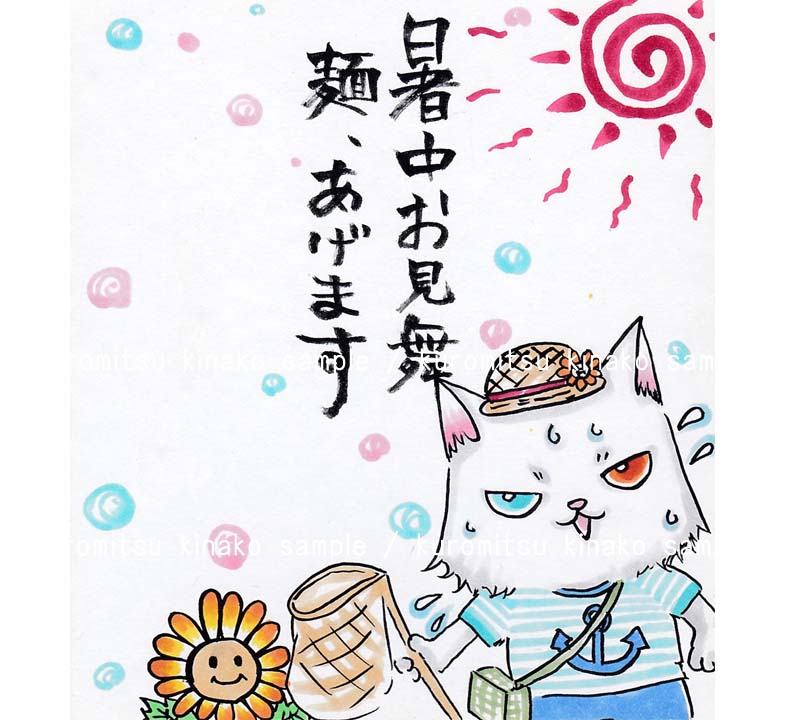 暑中お見舞
麺、あげます
kuromitsu kinako sample / kuromitsu kinako sample
kuromitsu kinako sample / kuromitsu kinako sample